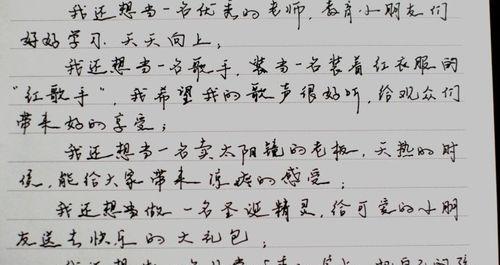 我还想当一名优秀的老师，教育小朋友们
好好学习、天天向上；
我还想当一名歌手，装当一名装着红衣服的
“红歌手”，我希望我的歌声很好听，给观众们
带来好的享受；
我还想当一名卖太阳镜的老板，天热的时
候，能给大家带来凉爽的感受；
我还想当做一名圣诞精灵，给可爱的小朋
友送去快乐的大礼包；
我还想当一名